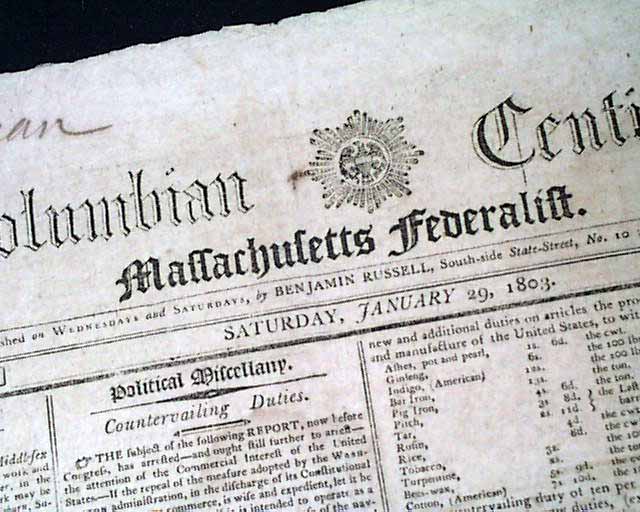 olumbian Centi
Maſſachuſetts Federaliſt.
ſhed on WEDNESDAYS and SATURDAYS, by BENJAMIN RUSSELL, South-side State-Street, No. 10
SATURDAY, JANUARY 29, 1803.
Political Miſcellany.
Countervailing Duties.
THE ſubject of the following REPORT, now before
Congreſs, has arreſted—and ought ſtill further to arreſt—
the attention of the Commercial Intereſt of the United
States—If the repeal of the meaſure adopted by the WASH-
adminiſtration, in the diſcharge of its Conſtitutional
commerce, is wiſe and expedient, let it be
is intended to operate as a
of the nav-
Middleſex
work and
in the
may be
new and additional duties on articles the pro
and manufacture of the United States, to wit
Aſhes, pot and pearl, 1s. 6d. the cwt.
Ginſeng, 6s. the 100 lb
Indigo, (American) 12s. the 100
Bar Iron, 13s. the ton.
Pig Iron, the ton.
Pitch,
Tar,
Roſin,
Rice,
Tobacco,
Turpentine,
Bees-wax,
Cotton, (American)
countervailing duty of ten per